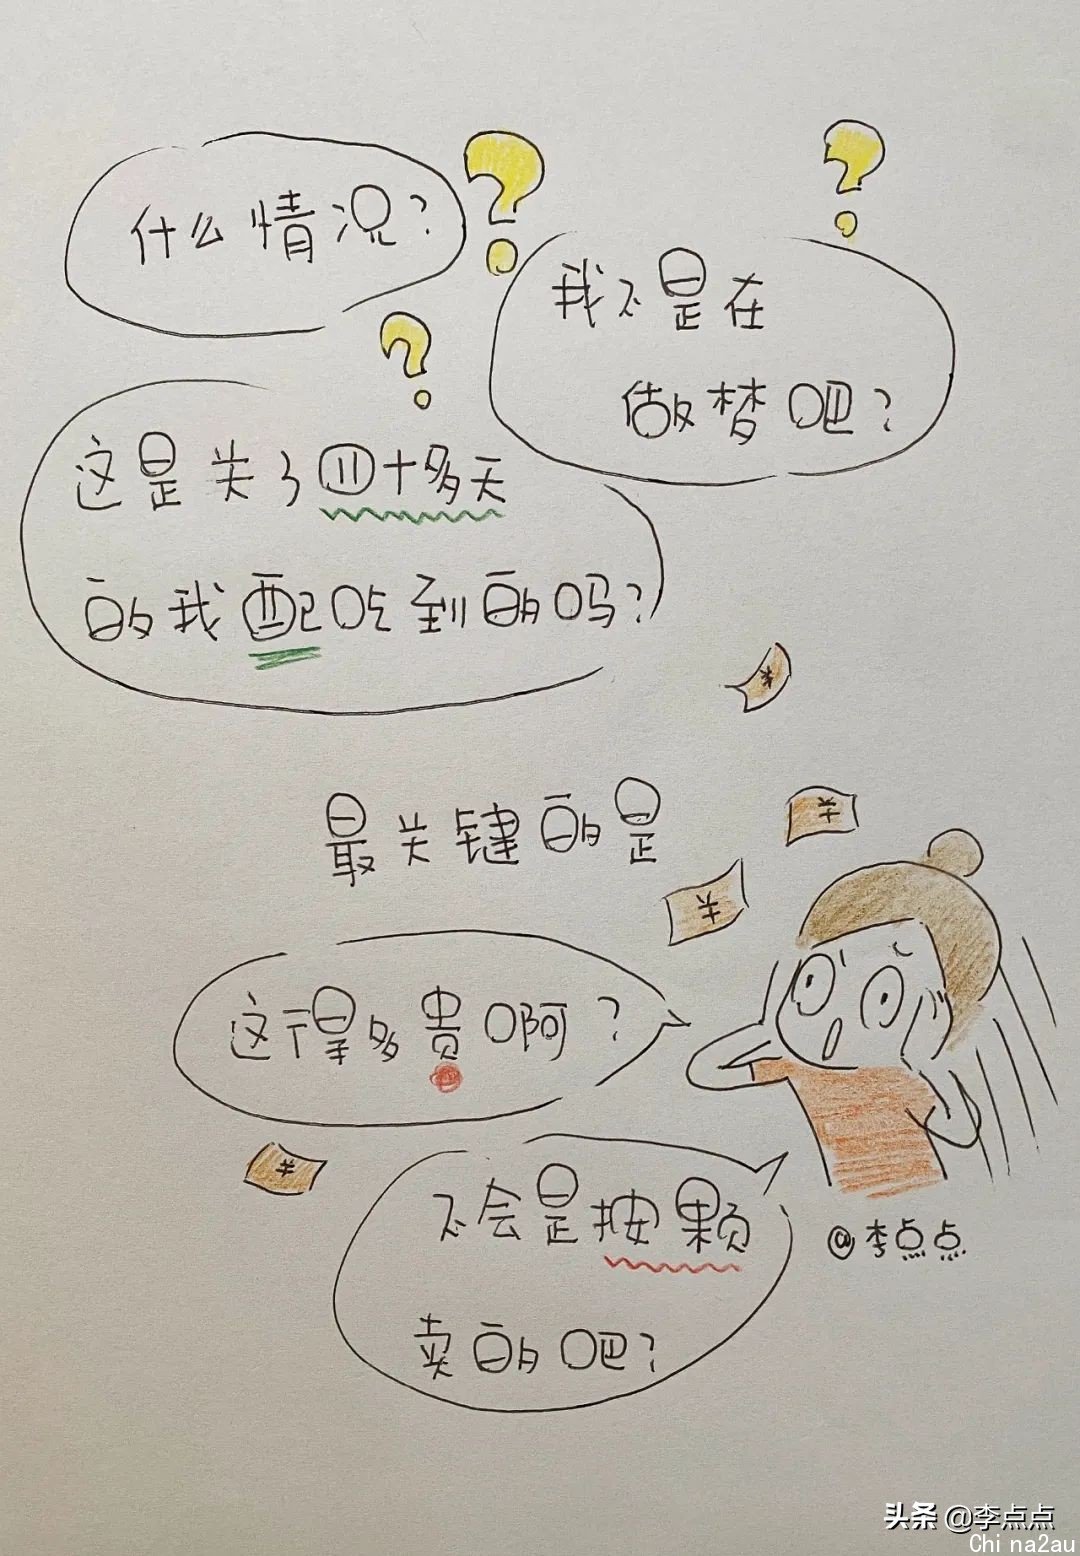 什么情况？
我不是在
做梦吧？
这是关了四十多天
的我配吃到的吗？
最关键的是
这得多贵啊？
不会是按颗
卖的吧？
@李点点
¥
¥
¥
¥
头条 @李点点
China2au